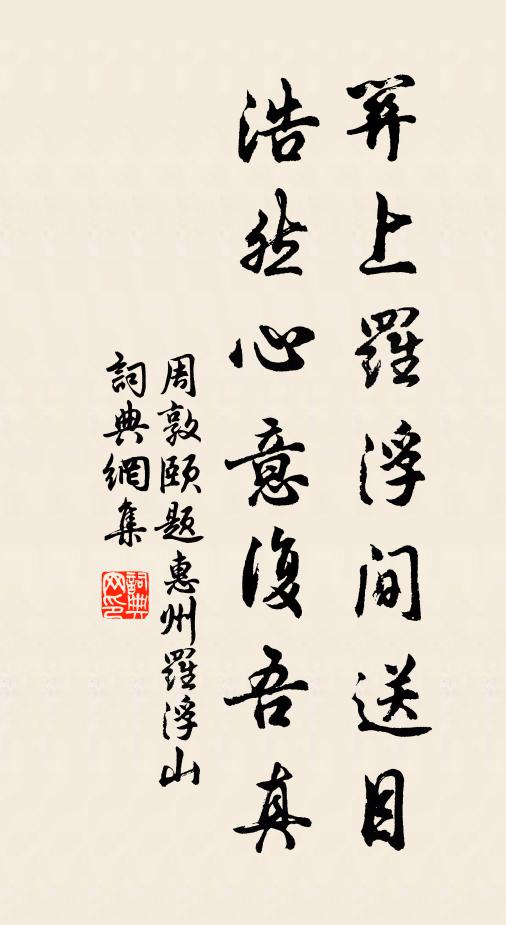 關上羅浮间送目
浩然心意復吾真
周敦颐题惠州羅浮山
詞典網集
詞典网印